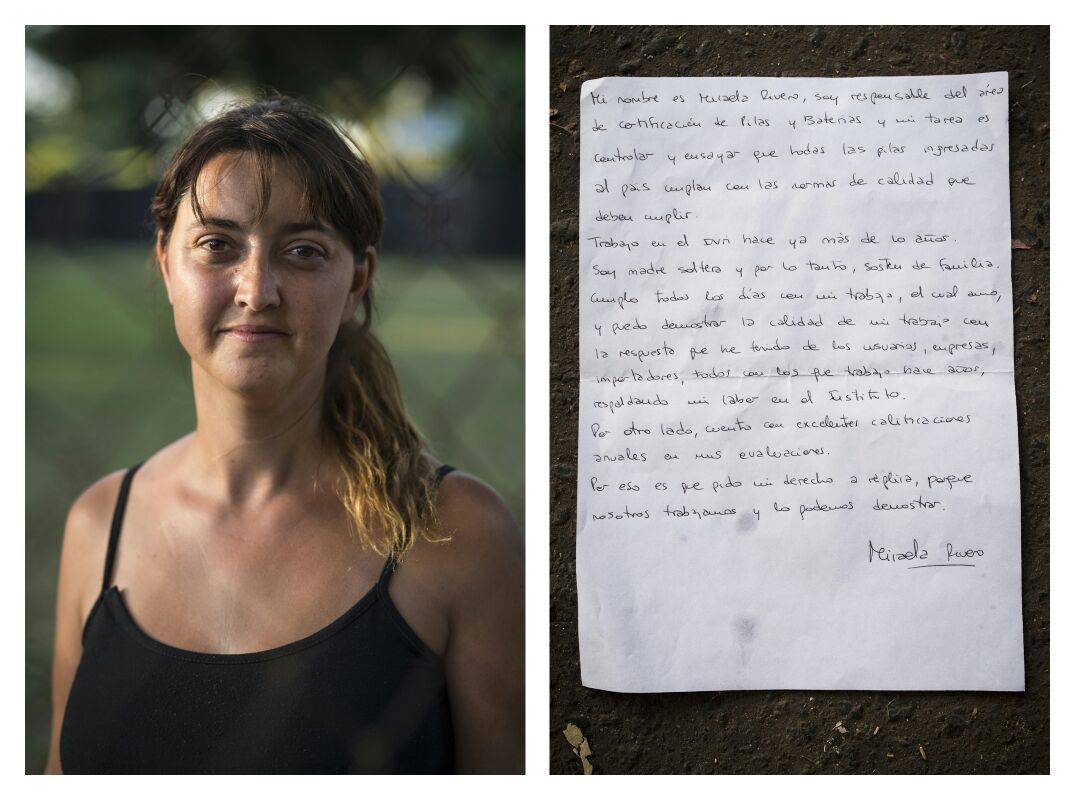 Mi nombre es Micaela Rivero, soy responsable del área
de certificación de Pilas y Baterías y mi tarea es
controlar y ensayar que todas las pilas ingresadas
al país cumplan con las normas de calidad que
deben cumplir.
Trabajo en el INTI hace ya más de 10 años.
Soy madre soltera y por lo tanto, sostén de familia.
Cumplo todos los días con mi trabajo, el cual amo,
y puedo demostrar la calidad de mi trabajo con
la respuesta que he tenido de los usuarios, empresas,
importadores, todos con los que trabajo hace años,
respaldando mi labor en el Instituto.
Por otro lado, cuento con excelentes calificaciones
anuales en mis evaluaciones.
Por eso es que pido mi derecho a réplica, porque
nosotros trabajamos y lo podemos demostrar.
Micaela Rivero